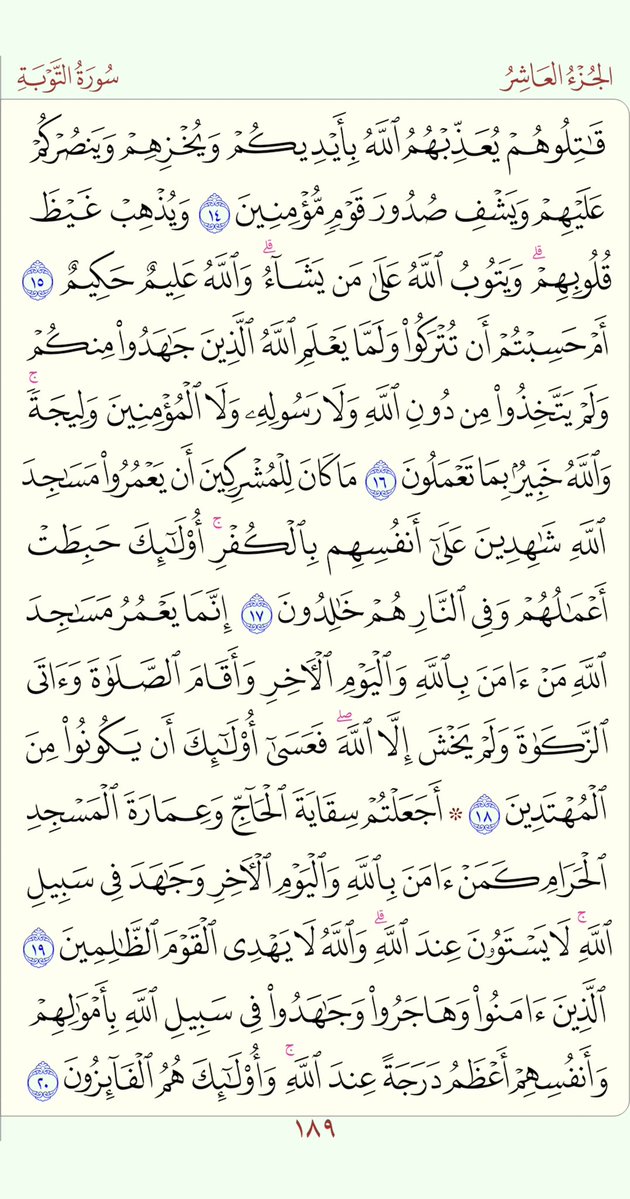 الجُزْءُ العَاشِرُ سُورَةُ التَّوْبَةِ
قَٰتِلُوهُمْ يُعَذِّبْهُمُ ٱللَّهُ بِأَيْدِيكُمْ وَيُخْزِهِمْ وَيَنصُرْكُمْ
عَلَيْهِمْ وَيَشْفِ صُدُورَ قَوْمٍ مُّؤْمِنِينَ ١٤ وَيُذْهِبْ غَيْظَ
قُلُوبِهِمْۗ وَيَتُوبُ ٱللَّهُ عَلَىٰ مَن يَشَآءُۗ وَٱللَّهُ عَلِيمٌ حَكِيمٌ ١٥
أَمْ حَسِبْتُمْ أَن تُتْرَكُوا۟ وَلَمَّا يَعْلَمِ ٱللَّهُ ٱلَّذِينَ جَٰهَدُوا۟ مِنكُمْ
وَلَمْ يَتَّخِذُوا۟ مِن دُونِ ٱللَّهِ وَلَا رَسُولِهِۦ وَلَا ٱلْمُؤْمِنِينَ وَلِيجَةًۚ
وَٱللَّهُ خَبِيرٌۢ بِمَا تَعْمَلُونَ ١٦ مَا كَانَ لِلْمُشْرِكِينَ أَن يَعْمُرُوا۟ مَسَٰجِدَ
ٱللَّهِ شَٰهِدِينَ عَلَىٰٓ أَنفُسِهِم بِٱلْكُفْرِۚ أُو۟لَٰٓئِكَ حَبِطَتْ
أَعْمَٰلُهُمْ وَفِى ٱلنَّارِ هُمْ خَٰلِدُونَ ١٧ إِنَّمَا يَعْمُرُ مَسَٰجِدَ
ٱللَّهِ مَنْ ءَامَنَ بِٱللَّهِ وَٱلْيَوْمِ ٱلْءَاخِرِ وَأَقَامَ ٱلصَّلَوٰةَ وَءَاتَى
ٱلزَّكَوٰةَ وَلَمْ يَخْشَ إِلَّا ٱللَّهَۖ فَعَسَىٰٓ أُو۟لَٰٓئِكَ أَن يَكُونُوا۟ مِنَ
ٱلْمُهْتَدِينَ ١٨ * أَجَعَلْتُمْ سِقَايَةَ ٱلْحَآجِّ وَعِمَارَةَ ٱلْمَسْجِدِ
ٱلْحَرَامِ كَمَنْ ءَامَنَ بِٱللَّهِ وَٱلْيَوْمِ ٱلْءَاخِرِ وَجَٰهَدَ فِى سَبِيلِ
ٱللَّهِۚ لَا يَسْتَوُۥنَ عِندَ ٱللَّهِۗ وَٱللَّهُ لَا يَهْدِى ٱلْقَوْمَ ٱلظَّٰلِمِينَ ١٩
ٱلَّذِينَ ءَامَنُوا۟ وَهَاجَرُوا۟ وَجَٰهَدُوا۟ فِى سَبِيلِ ٱللَّهِ بِأَمْوَٰلِهِمْ
وَأَنفُسِهِمْ أَعْظَمُ دَرَجَةً عِندَ ٱللَّهِۚ وَأُو۟لَٰٓئِكَ هُمُ ٱلْفَآئِزُونَ ٢٠
١٨٩